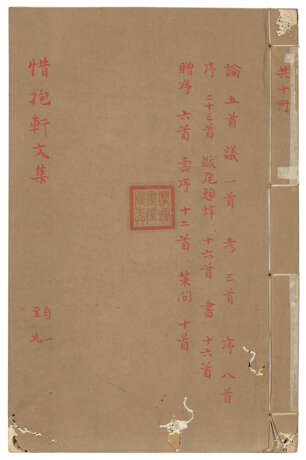 共十冊
論 五首 議 一首 考 三首 序 八首
序 二十三首 跋尾題辞 十六首 書 十六首
贈序 六首 壽序 十二首 策問 十首
惜抱軒文集
自一
至九